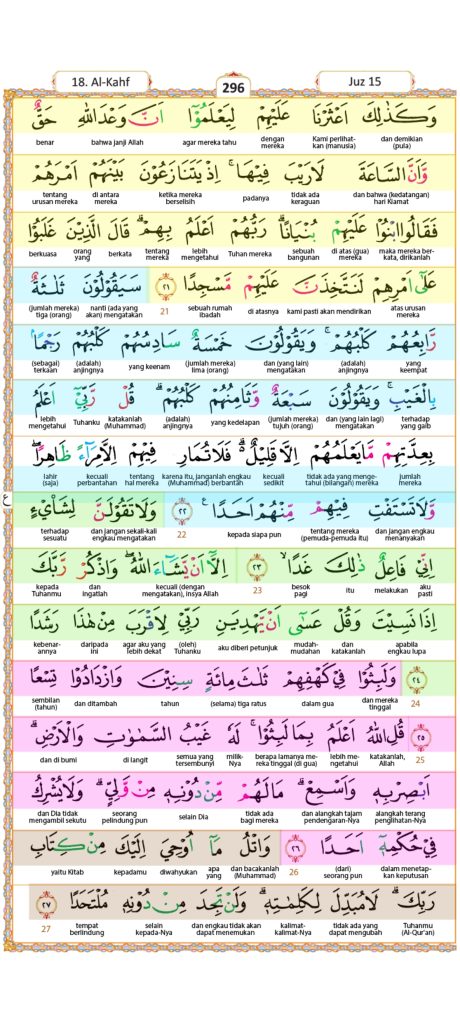 18. Al-Kahf
296
Juz 15
وَكَذٰلِكَ اَعْثَرْنَا عَلَيْهِمْ لِيَعْلَمُوْٓا اَنَّ وَعْدَ اللّٰهِ حَقٌّ
dan demikian (pula) Kami perlihat-kan (manusia) dengan mereka agar mereka tahu bahwa janji Allah benar
وَّاَنَّ السَّاعَةَ لَارَيْبَ فِيْهَاۚ اِذْ يَتَنَازَعُوْنَ بَيْنَهُمْ اَمْرَهُمْ
dan bahwa (kedatangan) hari Kiamat tidak ada keraguan padanya ketika mereka berselisih di antara mereka tentang urusan mereka
فَقَالُوا ابْنُوْا عَلَيْهِمْ بُنْيَانًاۗ رَبُّهُمْ اَعْلَمُ بِهِمْۗ قَالَ الَّذِيْنَ غَلَبُوْا
maka mereka ber-kata, dirikanlah di atas (gua) mereka sebuah bangunan Tuhan mereka lebih mengetahui tentang mereka berkata orang yang berkuasa
عَلٰٓى اَمْرِهِمْ لَنَتَّخِذَنَّ عَلَيْهِمْ مَّسْجِدًا ۝٢١ سَيَقُوْلُوْنَ ثَلٰثَةٌ
atas urusan mereka kami pasti akan mendirikan di atasnya sebuah rumah ibadah 21 nanti (ada yang akan) mengatakan (jumlah mereka) tiga (orang)
رَّابِعُهُمْ كَلْبُهُمْۚ وَيَقُوْلُوْنَ خَمْسَةٌ سَادِسُهُمْ كَلْبُهُمْ رَجْمًاۢ
yang keempat (adalah) anjingnya dan (yang lain) mengatakan (jumlah mereka) lima (orang) yang keenam (adalah) anjingnya (sebagai) terkaan
بِالْغَيْبِۚ وَيَقُوْلُوْنَ سَبْعَةٌ وَّثَامِنُهُمْ كَلْبُهُمْۗ قُلْ رَّبِّيْٓ اَعْلَمُ
terhadap yang gaib dan (yang lain lagi) mengatakan (jumlah mereka) tujuh (orang) yang kedelapan (adalah) anjingnya katakanlah (Muhammad) Tuhanku lebih mengetahui
بِعِدَّتِهِمْ مَّايَعْلَمُهُمْ اِلَّا قَلِيْلٌ ەۗ فَلَا تُمَارِ فِيْهِمْ اِلَّا مِرَاۤءً ظَاهِرًاۖ
jumlah mereka tidak ada yang menge-tahui (bilangan) mereka kecuali sedikit karena itu, janganlah engkau (Muhammad) berbantah tentang hal mereka kecuali perbantahan lahir (saja)
وَّلَا تَسْتَفْتِ فِيْهِمْ مِّنْهُمْ اَحَدًا ࣖ ۝٢٢ وَلَا تَقُوْلَنَّ لِشَا۟يْءٍ
dan jangan engkau menanyakan tentang mereka (pemuda-pemuda itu) kepada siapa pun 22 dan jangan sekali-kali engkau mengatakan terhadap sesuatu
ع
اِنِّيْ فَاعِلٌ ذٰلِكَ غَدًاۙ ۝٢٣ اِلَّآ اَنْ يَّشَاۤءَ اللّٰهُۖ وَاذْكُرْ رَّبَّكَ
aku pasti melakukan itu besok pagi 23 kecuali (dengan mengatakan), insya Allah dan ingatlah kepada Tuhanmu
اِذَا نَسِيْتَ وَقُلْ عَسٰٓى اَنْ يَّهْدِيَنِ رَبِّيْ لِاَقْرَبَ مِنْ هٰذَا رَشَدًا
apabila engkau lupa dan katakanlah mudah-mudahan aku diberi petunjuk (oleh) Tuhanku agar aku yang lebih dekat daripada ini kebenar-annya
۝٢٤ وَلَبِثُوْا فِيْ كَهْفِهِمْ ثَلٰثَ مِائَةٍ سِنِيْنَ وَازْدَادُوْا تِسْعًا
24 dan mereka tinggal dalam gua (selama) tiga ratus tahun dan ditambah sembilan (tahun)
۝٢٥ قُلِ اللّٰهُ اَعْلَمُ بِمَا لَبِثُوْاۚ لَهٗ غَيْبُ السَّمٰوٰتِ وَالْاَرْضِۗ
25 katakanlah, Allah lebih me-ngetahui berapa lamanya me-reka tinggal (di gua) milik-Nya semua yang tersembunyi di langit dan di bumi
اَبْصِرْ بِهٖ وَاَسْمِعْۗ مَا لَهُمْ مِّنْ دُوْنِهٖ مِنْ وَّلِيٍّۗ وَلَا يُشْرِكُ
alangkah terang penglihatan-Nya dan alangkah tajam pendengaran-Nya tidak ada bagi mereka selain Dia seorang pelindung pun dan Dia tidak mengambil sekutu
فِيْ حُكْمِهٖٓ اَحَدًا ۝٢٦ وَاتْلُ مَآ اُوْحِيَ اِلَيْكَ مِنْ كِتَابِ
dalam menetap-kan keputusan (dari) seorang pun 26 dan bacakanlah (Muhammad) apa yang diwahyukan kepadamu yaitu Kitab
رَبِّكَۗ لَا مُبَدِّلَ لِكَلِمٰتِهٖۗ وَلَنْ تَجِدَ مِنْ دُوْنِهٖ مُلْتَحَدًا ۝٢٧
Tuhanmu (Al-Qur'an) tidak ada yang dapat mengubah kalimat-kalimat-Nya dan engkau tidak akan dapat menemukan selain kepada-Nya tempat berlindung 27